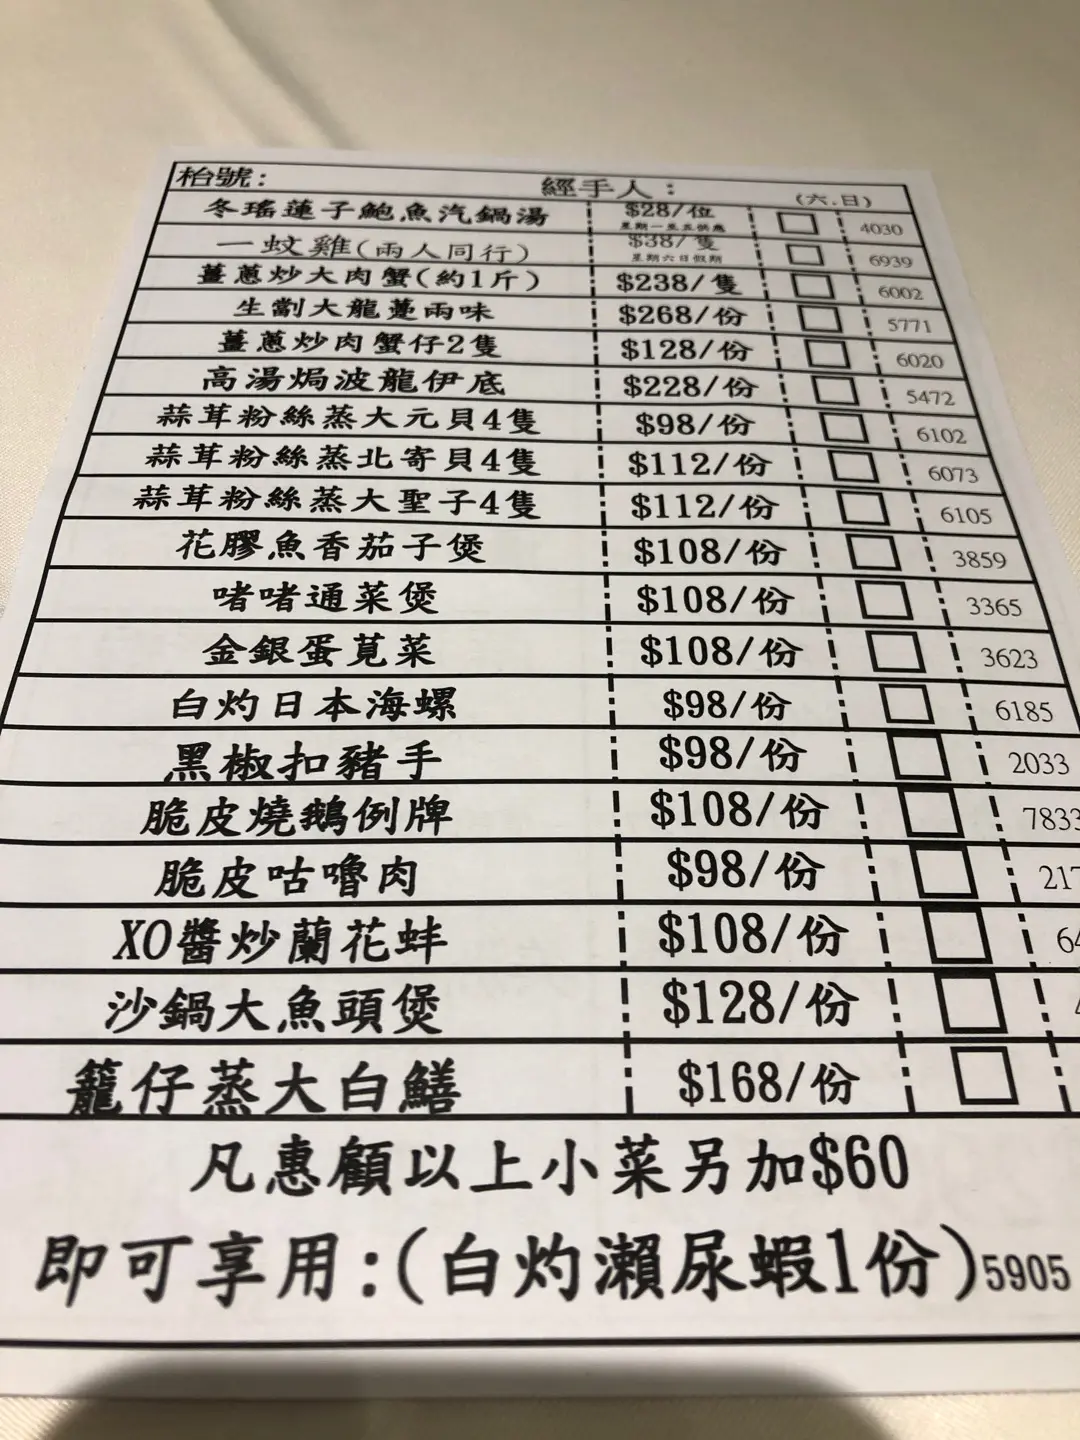 枱號: 經手人: (六.日)
冬瑤蓮子鮑魚汽鍋湯 $28/位 星期一至五供應 4030
一蚊雞(兩人同行) $38/隻 星期六日假期 6939
薑蔥炒大肉蟹(約1斤) $238/隻 6002
生劏大龍躉兩味 $268/份 5771
薑蔥炒肉蟹仔2隻 $128/份 6020
高湯焗波龍伊底 $228/份 5472
蒜茸粉絲蒸大元貝4隻 $98/份 6102
蒜茸粉絲蒸北寄貝4隻 $112/份 6073
蒜茸粉絲蒸大聖子4隻 $112/份 6105
花膠魚香茄子煲 $108/份 3859
啫啫通菜煲 $108/份 3365
金銀蛋莧菜 $108/份 3623
白灼日本海螺 $98/份 6185
黑椒扣豬手 $98/份 2033
脆皮燒鵝例牌 $108/份 7833
脆皮咕嚕肉 $98/份 217
XO醬炒蘭花蚌 $108/份 64
沙鍋大魚頭煲 $128/份
籠仔蒸大白鱔 $168/份
凡惠顧以上小菜另加$60
即可享用:(白灼瀨尿蝦1份)5905